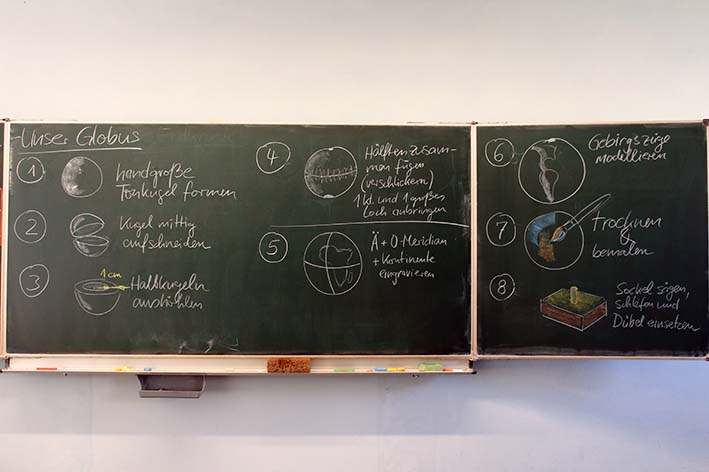 Unser Globus
1
handgroße
Tonkugel formen
2
Kugel mittig
aufschneiden
3
1cm
Halbkugeln
aushöhlen
4
Hälften zusam-
men fügen
(verschlickern)
1 kl. und 1 großes
Loch anbringen
5
Ä + 0-Meridian
+ Kontinente
eingravieren
6
Gebirgszüge
modellieren
7
trocknen
bemalen
8
Sockel sägen,
schleifen und
Dübel einsetzen